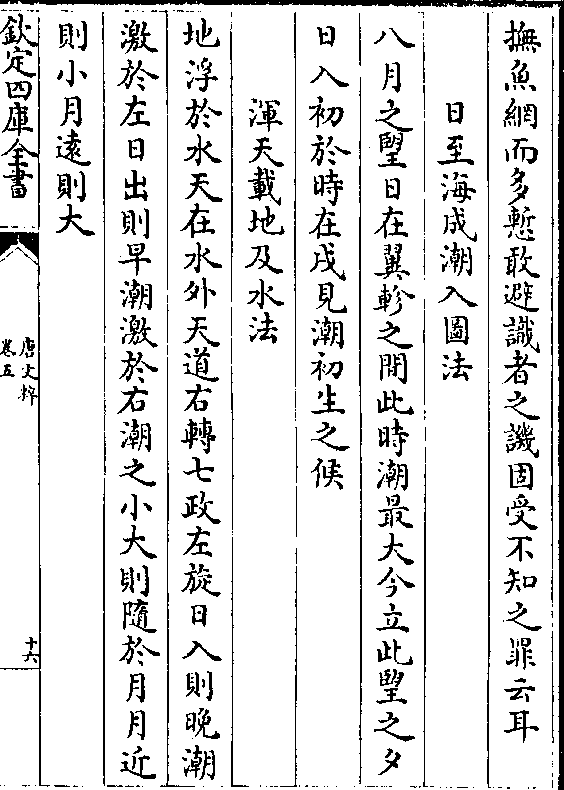 撫魚網而多慙敢避識者之譏固受不知之罪云耳
日至海成潮入圖法
八月之朢日在翼軫之間此時潮最大今立此朢之夕
日入初於時在戌見潮初生之候
渾天載地及水法
地浮於水天在水外天道右轉七政左旋日入則晚潮
激於左日出則早潮激於右潮之小大則隨於月月近
則小月遠則大
欽定四庫全書
唐文粹
卷五
十六